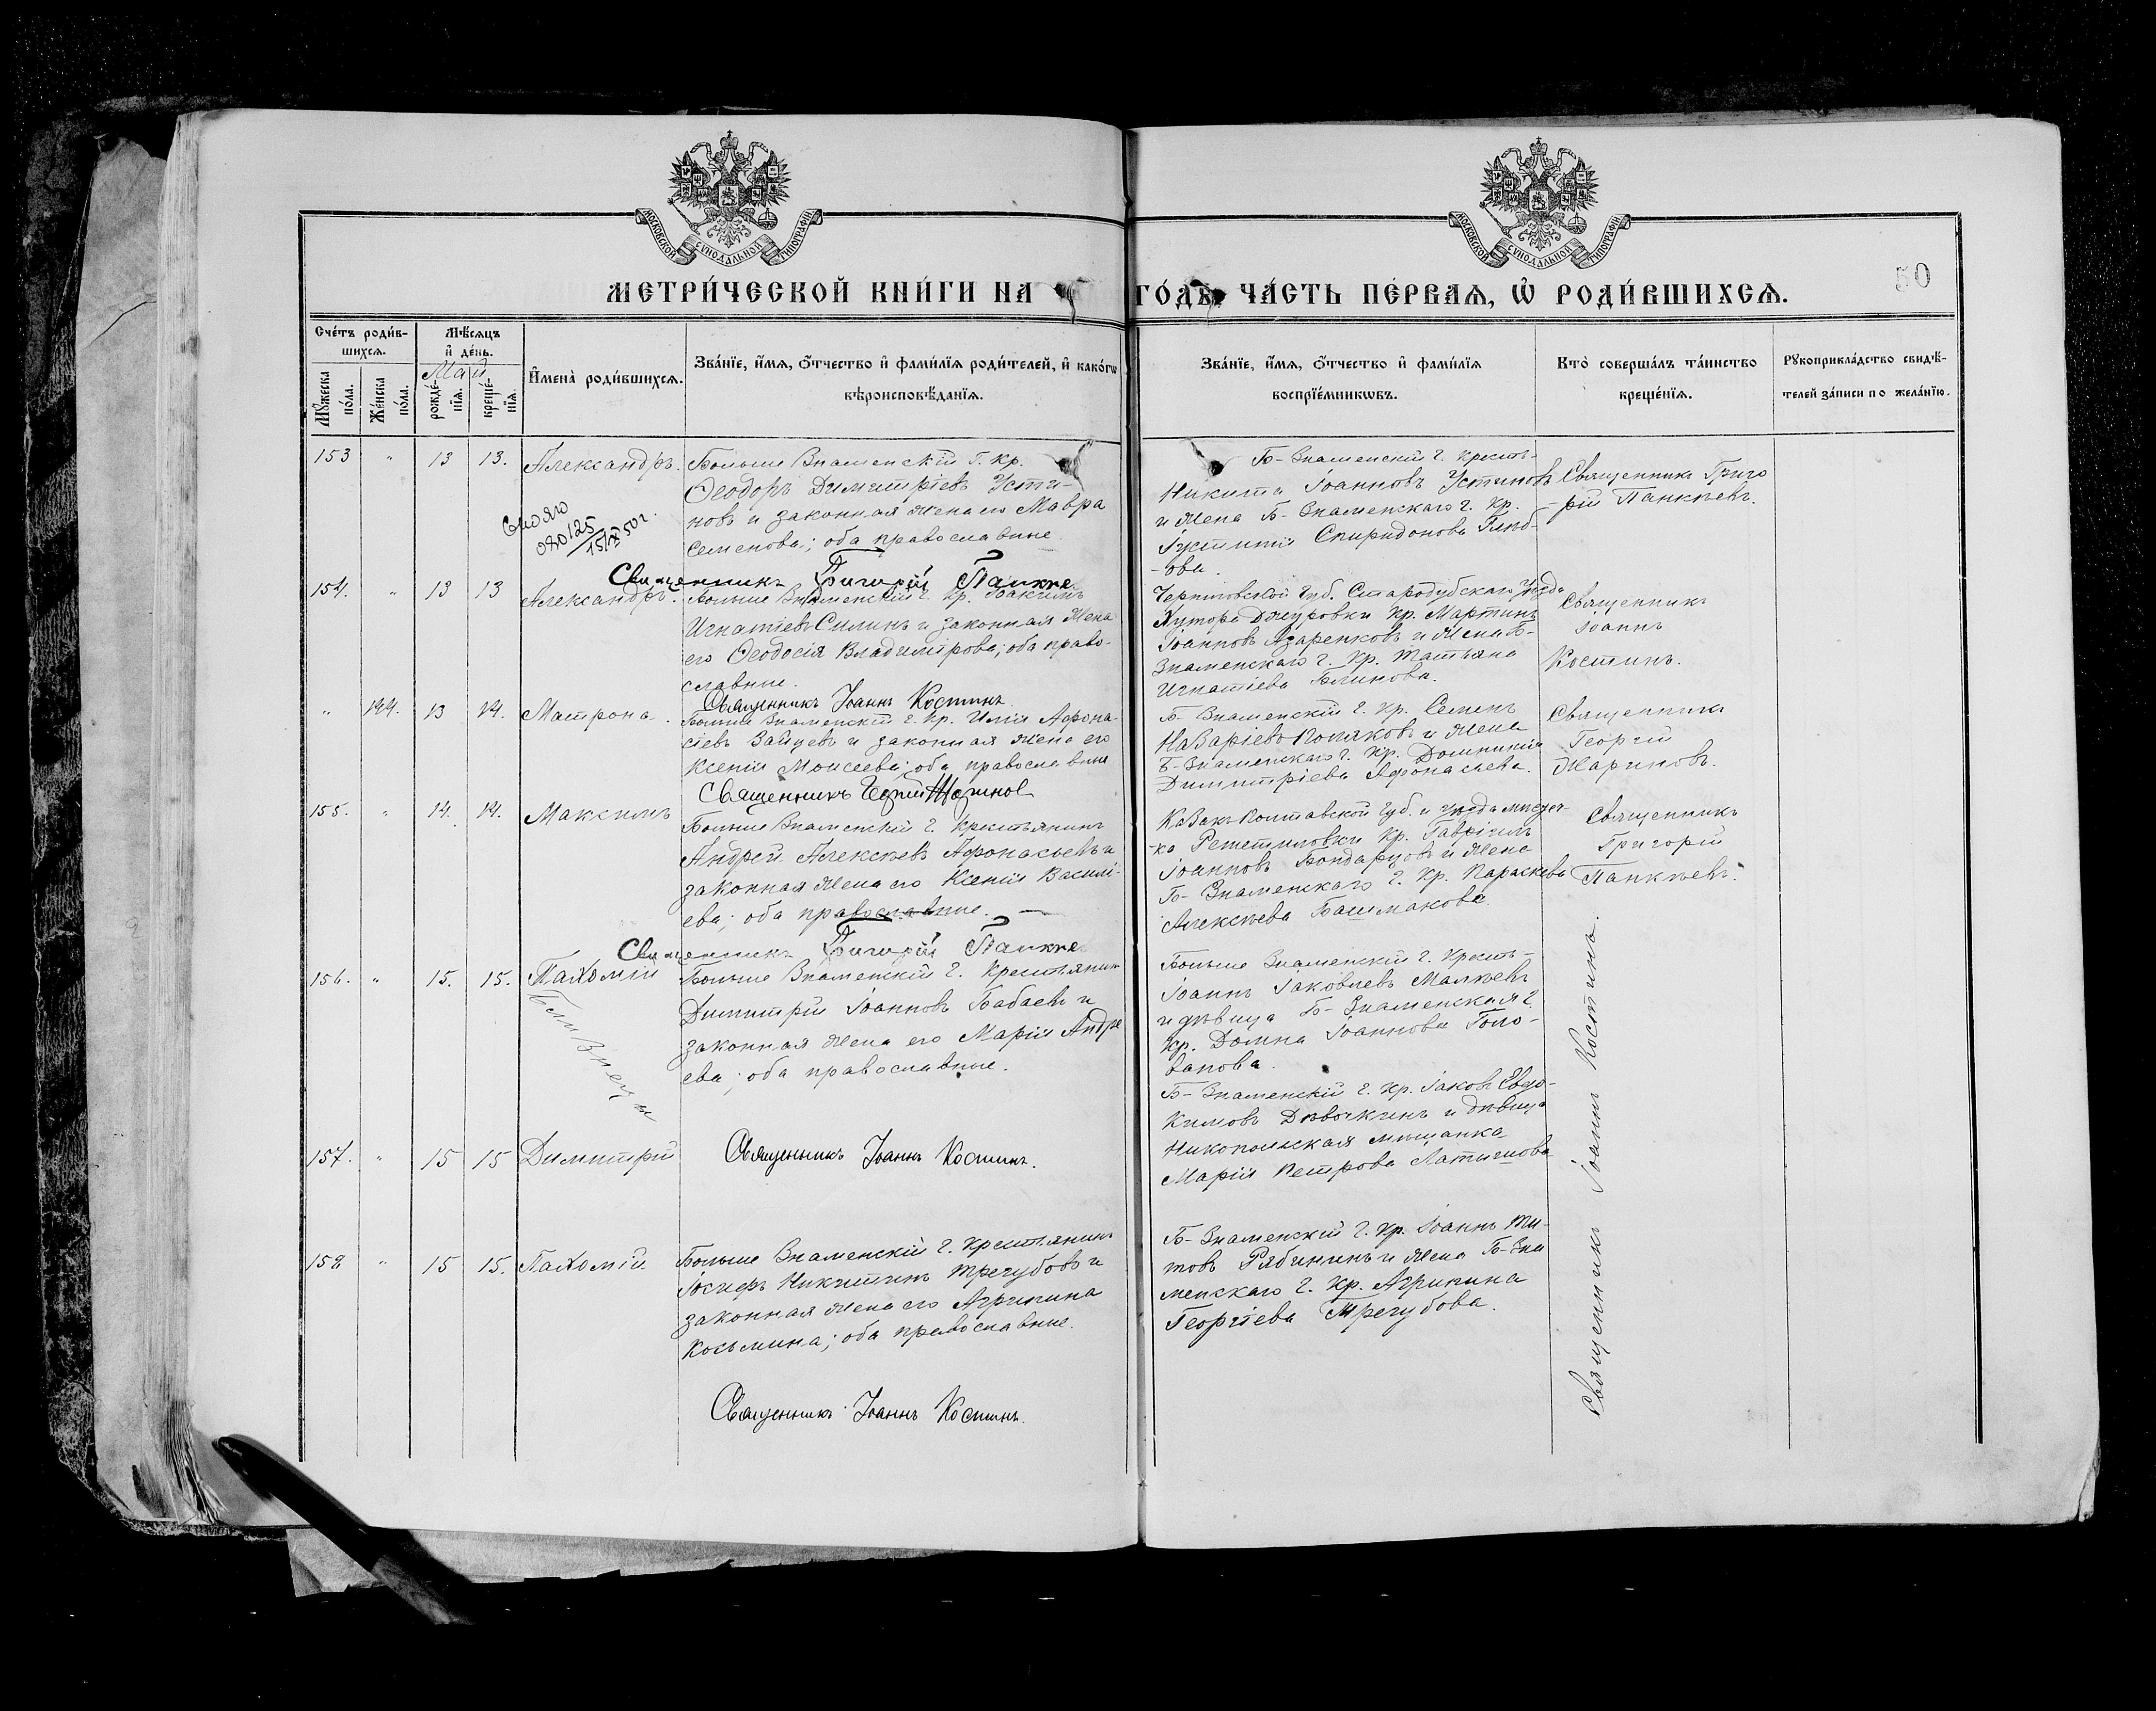 МОСКОВСКОЙ СѴНОДАЛЬНОЙ ТИПОГРАФІИ
МОСКОВСКОЙ СѴНОДАЛЬНОЙ ТИПОГРАФІИ
МЕТРИ́ЧЕСКОЙ КНИ́ГИ НА ГО́ДЪ, ЧА́СТЬ ПЕ́РВАЯ, Ѡ РОДИ́ВШИХСЯ.
50
Сче́тъ роди́в-
шихся.
Мѣ́сяцъ
и҆ де́нь.
Май
Му́жеска
по́ла.
Же́нска
по́ла.
рожде́-
нїя.
креще́-
нїя.
И҆мена̀ роди́вшихся.
Зва́нїе, и҆́мя, ѻ҆́тчество и҆ фами́лїя роди́телей, и҆ како́гѡ
вѣроисповѣ́данїя.
Зва́нїе, и҆́мя, ѻ҆́тчество и҆ фами́лїя
воспрїе́мникѡвъ.
Кто̀ соверша́лъ та́инство
креще́нїя.
Рꙋкоприкла́дство свидѣ́-
телей за́писи по жела́нїю.
153 " 13 13. Александръ.
Больше Знаменскій г. кр.
Ѳеодоръ Димитріевъ Усти-
новъ и законная жена его Мавра
Семенова; оба православные.
15/X 50 г.
Священникъ Григорій Панкѣе
Б-Знаменскій г. кресть-
Никита Іоанновъ Устиновъ
и жена Б-Знаменскаго г. кр.
Іустинія Спиридонова Глѣб-
-ова.
Священникъ Григо
-рій Панкѣевъ.
154. " 13 13 Александръ.
Больше Знаменскій г. кр. Іоакимъ
Игнатіевъ Силинъ и законная жена
его Ѳеодосія Владимірова; оба право-
славные.
Священникъ Іоаннъ Костинъ
Черниговской губ. Стародубскаго уѣзда
хутора Джуровки кр. Мартинъ
Іоанновъ Азаренковъ и жена Б-
Знаменскаго г. кр. Татьяна
Игнатіева Блинова.
Священникъ
Іоаннъ
Костинъ.
" 144. 13 14. Матрона.
Больше Знаменскій г. кр. Илія Афона-
сіевъ Зайцевъ и законная жена его
Ксенія Моисеева; оба православные
Священникъ Георгій Жариновъ
Б-Знаменскій г. кр. Семенъ
Назаріевъ Поляковъ и жена
Б-Знаменскаго г. кр. Домникія
Димитріева Афонасьева.
Священникъ
Георгій
Жариновъ.
155. " 14. 14. Максимъ
Больше Знаменскій г. крестьянинъ
Андрей Алексѣевъ Афонасьевъ и
законная жена его Ксенія Василі-
ева; оба православные.
Священникъ Григорій Панкѣе
Казакъ Полтавской губ. и уѣзда мѣстеч-
-ка Решетиловки кр. Гавріилъ
Іоанновъ Бондарцовъ и жена
Б-Знаменскаго г. кр. Параскева
Алексѣева Башмакова.
Священникъ
Григорій
Панкѣевъ.
156. " 15. 15. Пахомій
Близнецы
Больше Знаменскій г. крестьянинъ
Димитрій Іоанновъ Бабаевъ и
законная жена его Марія Андре
ева; оба православные.
Больше Знаменскій г. кресть-
Іоаннъ Іаковлевъ Малѣевъ
и дѣвица Б-Знаменская г.
кр. Домна Іоаннова Голо-
ванова.
157. " 15 15 Димитрій
Священникъ Іоаннъ Костинъ.
Б-Знаменскій г. кр. Іаковъ Евдо-
кимовъ Дѣвочкинъ и дѣвица
Никопольская мѣщанка
Марія Петрова Латишова
158 " 15 15. Пахомій
Больше Знаменскій г. крестьянинъ
Іосифъ Никитинъ Трегубовъ и
законная жена его Агрипина
Косьмина; оба православные.
Священникъ Іоаннъ Костинъ.
Б-Знаменскій г. кр. Іоаннъ Ти-
товъ Рябининъ и жена Б-Зна
менскаго г. кр. Агрипина
Георгіева Трегубова.
Священникъ Іоаннъ Костинъ.